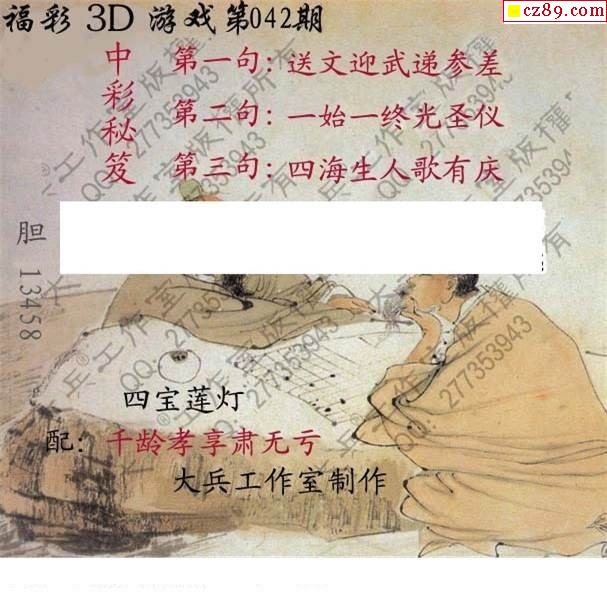 福彩 3D 游戏第042期
cz89.com
中彩秘笈
第一句：送文迎武递参差
第二句：一始一终光圣仪
第三句：四海生人歌有庆
胆 13458
四宝莲灯
配：千龄孝享肃无亏
大兵工作室制作
大兵工作室版权所有
QQ：277353943